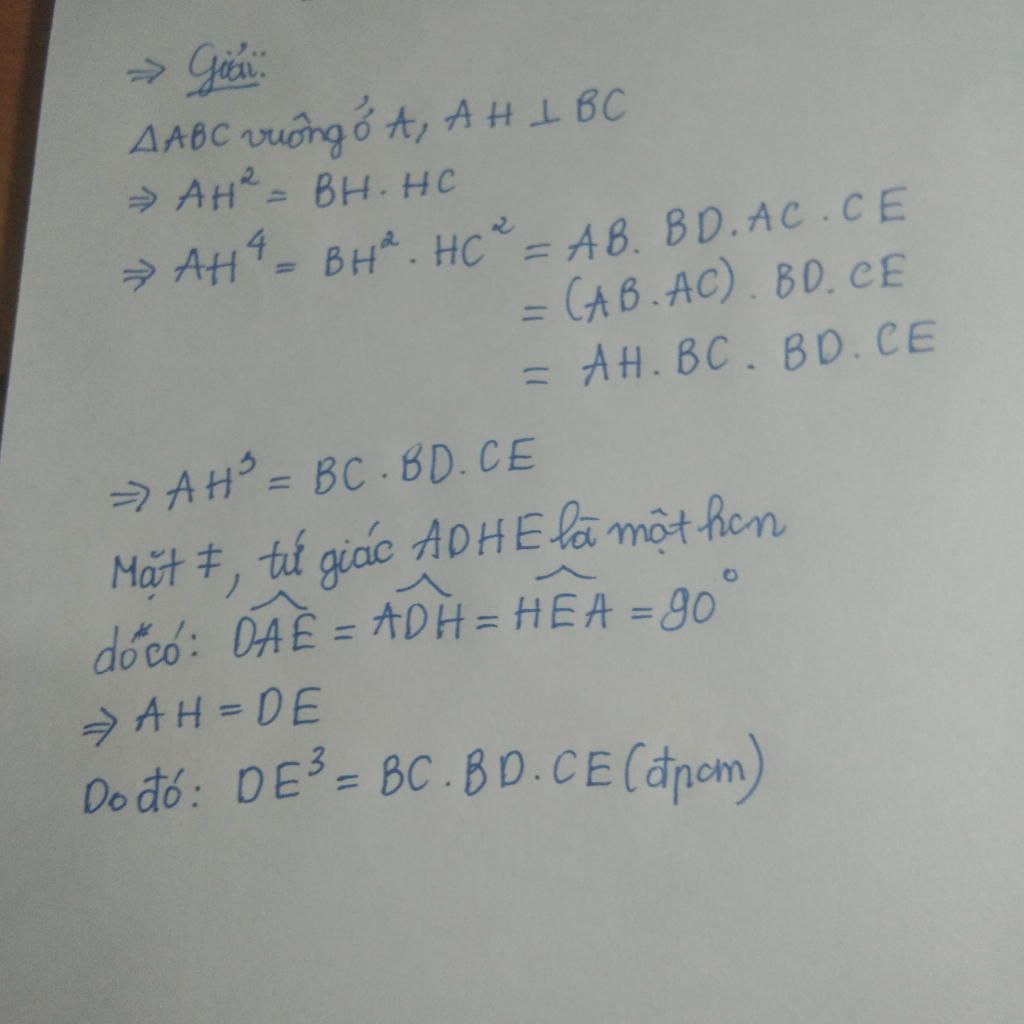 ⇒ Giải:
ΔABC vuông ở A, AH ⊥ BC
⇒ AH² = BH . HC
⇒ AH⁴ = BH² . HC² = AB . BD . AC . CE
= (AB . AC) . BD . CE
= AH . BC . BD . CE
⇒ AH³ = BC . BD . CE
Mặt ≠, tứ giác ADHE là một hcn
do có: \widehat{DAE} = \widehat{ADH} = \widehat{HEA} = 90°
⇒ AH = DE
Do đó: DE³ = BC . BD . CE (đpcm)